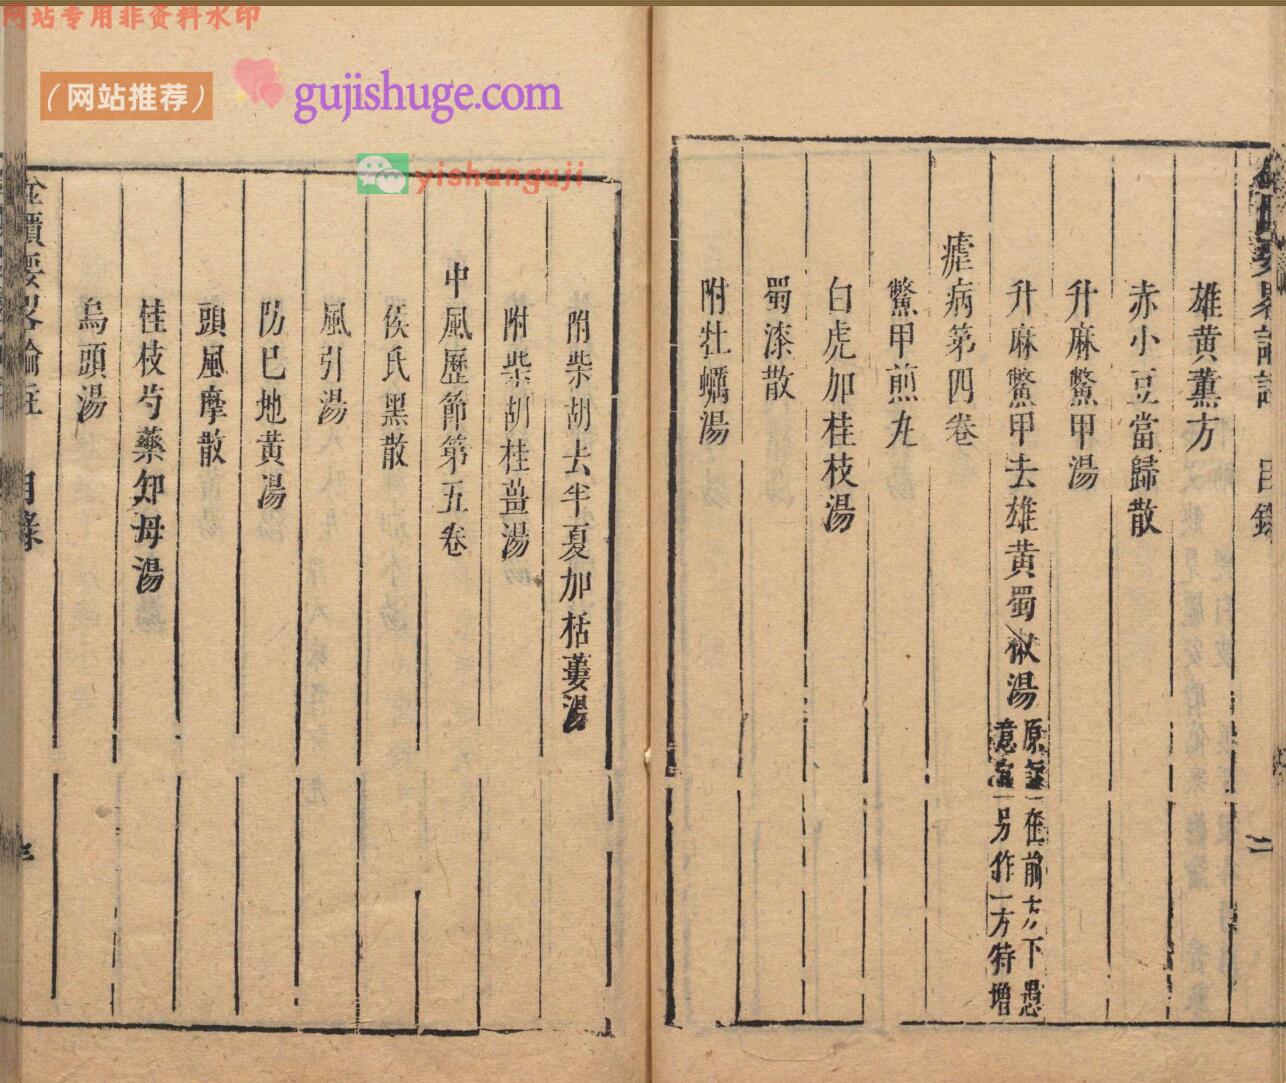 网站专用非资料水印
(网站推荐)
gujishuge.com
yishanguji
目錄
二
雄黃薰方
赤小豆當歸散
升麻鱉甲湯
升麻鱉甲去雄黃蜀椒湯
在前方下愚
意宜另作一方特增
瘧病第四卷
鱉甲煎丸
白虎加桂枝湯
蜀漆散
附牡蠣湯
附柴胡去半夏加栝蔞湯
附柴胡桂薑湯
中風歷節第五卷
侯氏黑散
風引湯
防已地黃湯
頭風摩散
桂枝芍藥知母湯
烏頭湯
金匱要畧論註
目錄
三